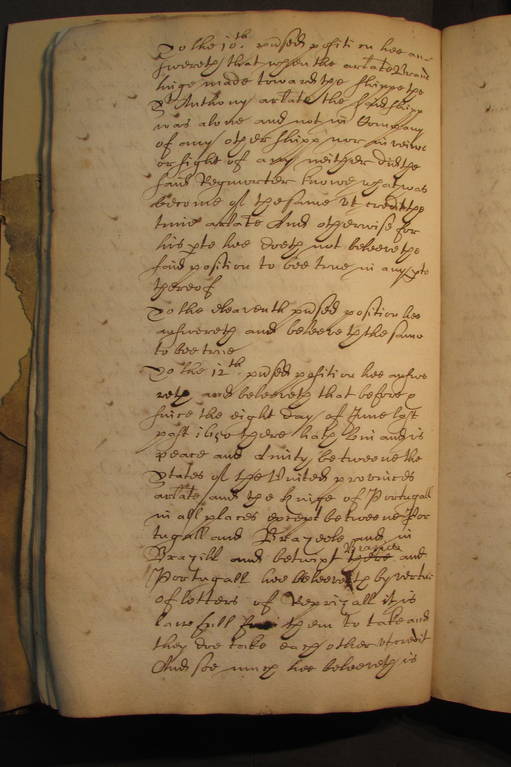 To the 10th. pnsed position hee an-
swereth that when the arlate Brand
hinge made towards the shippe the
St Anthony arlate the said shipp
was alone and not in Company
of any other shipp nor in veiwe
or sight of any neither did the
said Regmorter knowe what was
become of the same Ut credit the
time arlate And otherwise for
his pte hee doeth not beleeve the
said position to bee true in any pte
thereof
To the eleaventh pnsed position hee
answereth and beleeveth the same
to bee true
To the 12th. pnsed position hee answe
reth and beleeveth that before &
since the eight day of June last
past 1650 there hath bin and is
peace and Amity betweene the
States of the United provinces
arlate and the Kinge of Portugall
in all places except betweene Por
tugall and Brazeele and in
Brazill and betwixt France and
Portugall hee beleeveth by vertue
of letters of Reprizall it is
lawfull for them to take and
they doe take each other Ut credit
And soe much hee beleeveth is